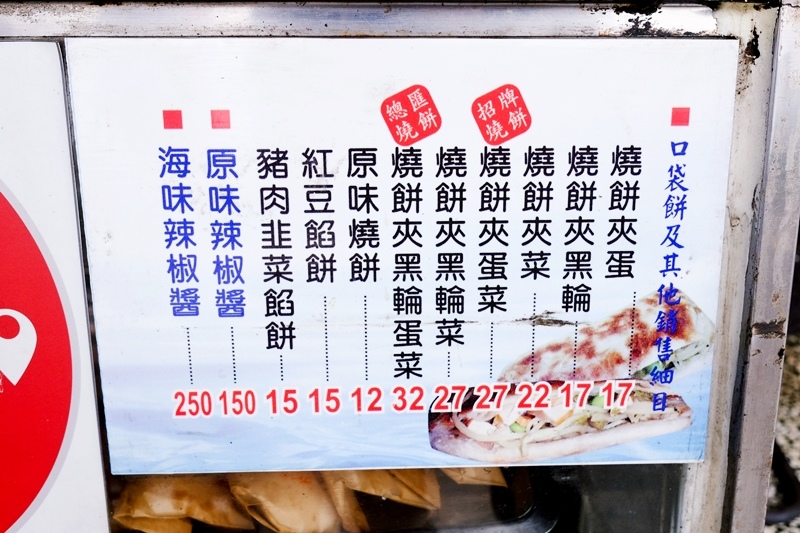 口袋餅及其他銷售細目
燒餅夾蛋 17
燒餅夾黑輪 17
燒餅夾菜 22
招牌燒餅
燒餅夾蛋菜 27
燒餅夾黑輪菜 27
總匯燒餅
燒餅夾黑輪蛋菜 32
原味燒餅 12
紅豆餡餅 15
豬肉韭菜餡餅 15
原味辣椒醬 150
海味辣椒醬 250